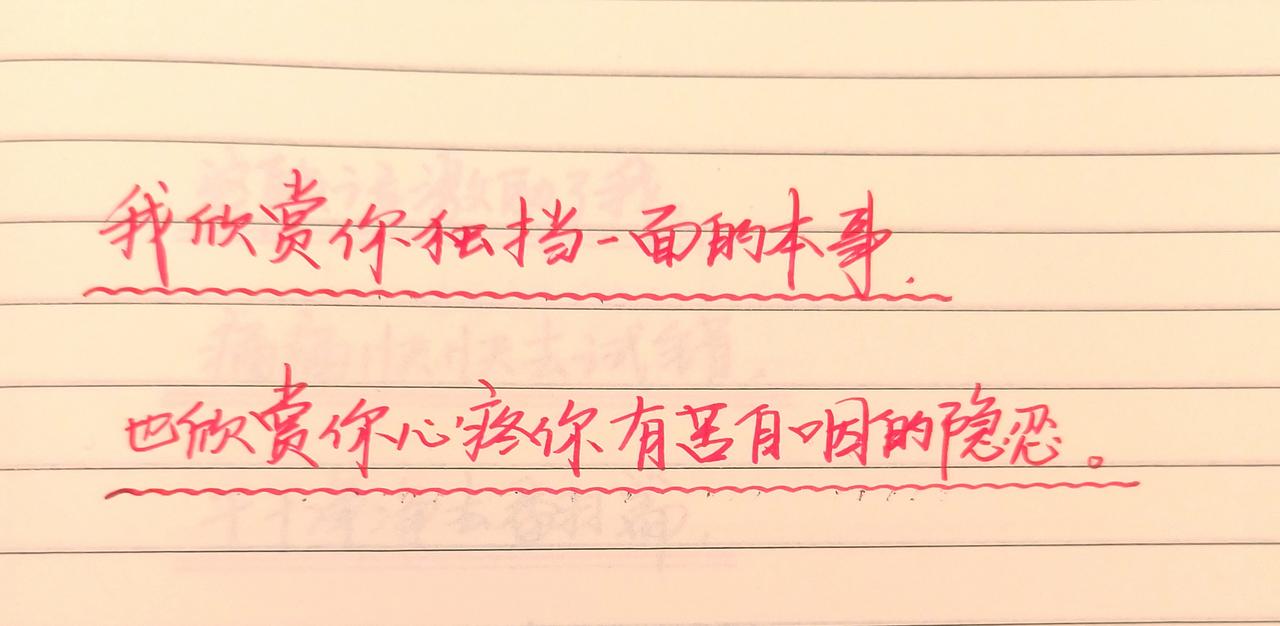 我欣赏你独挡一面的本事.
也欣赏你心疼你有苦自咽的隐忍。